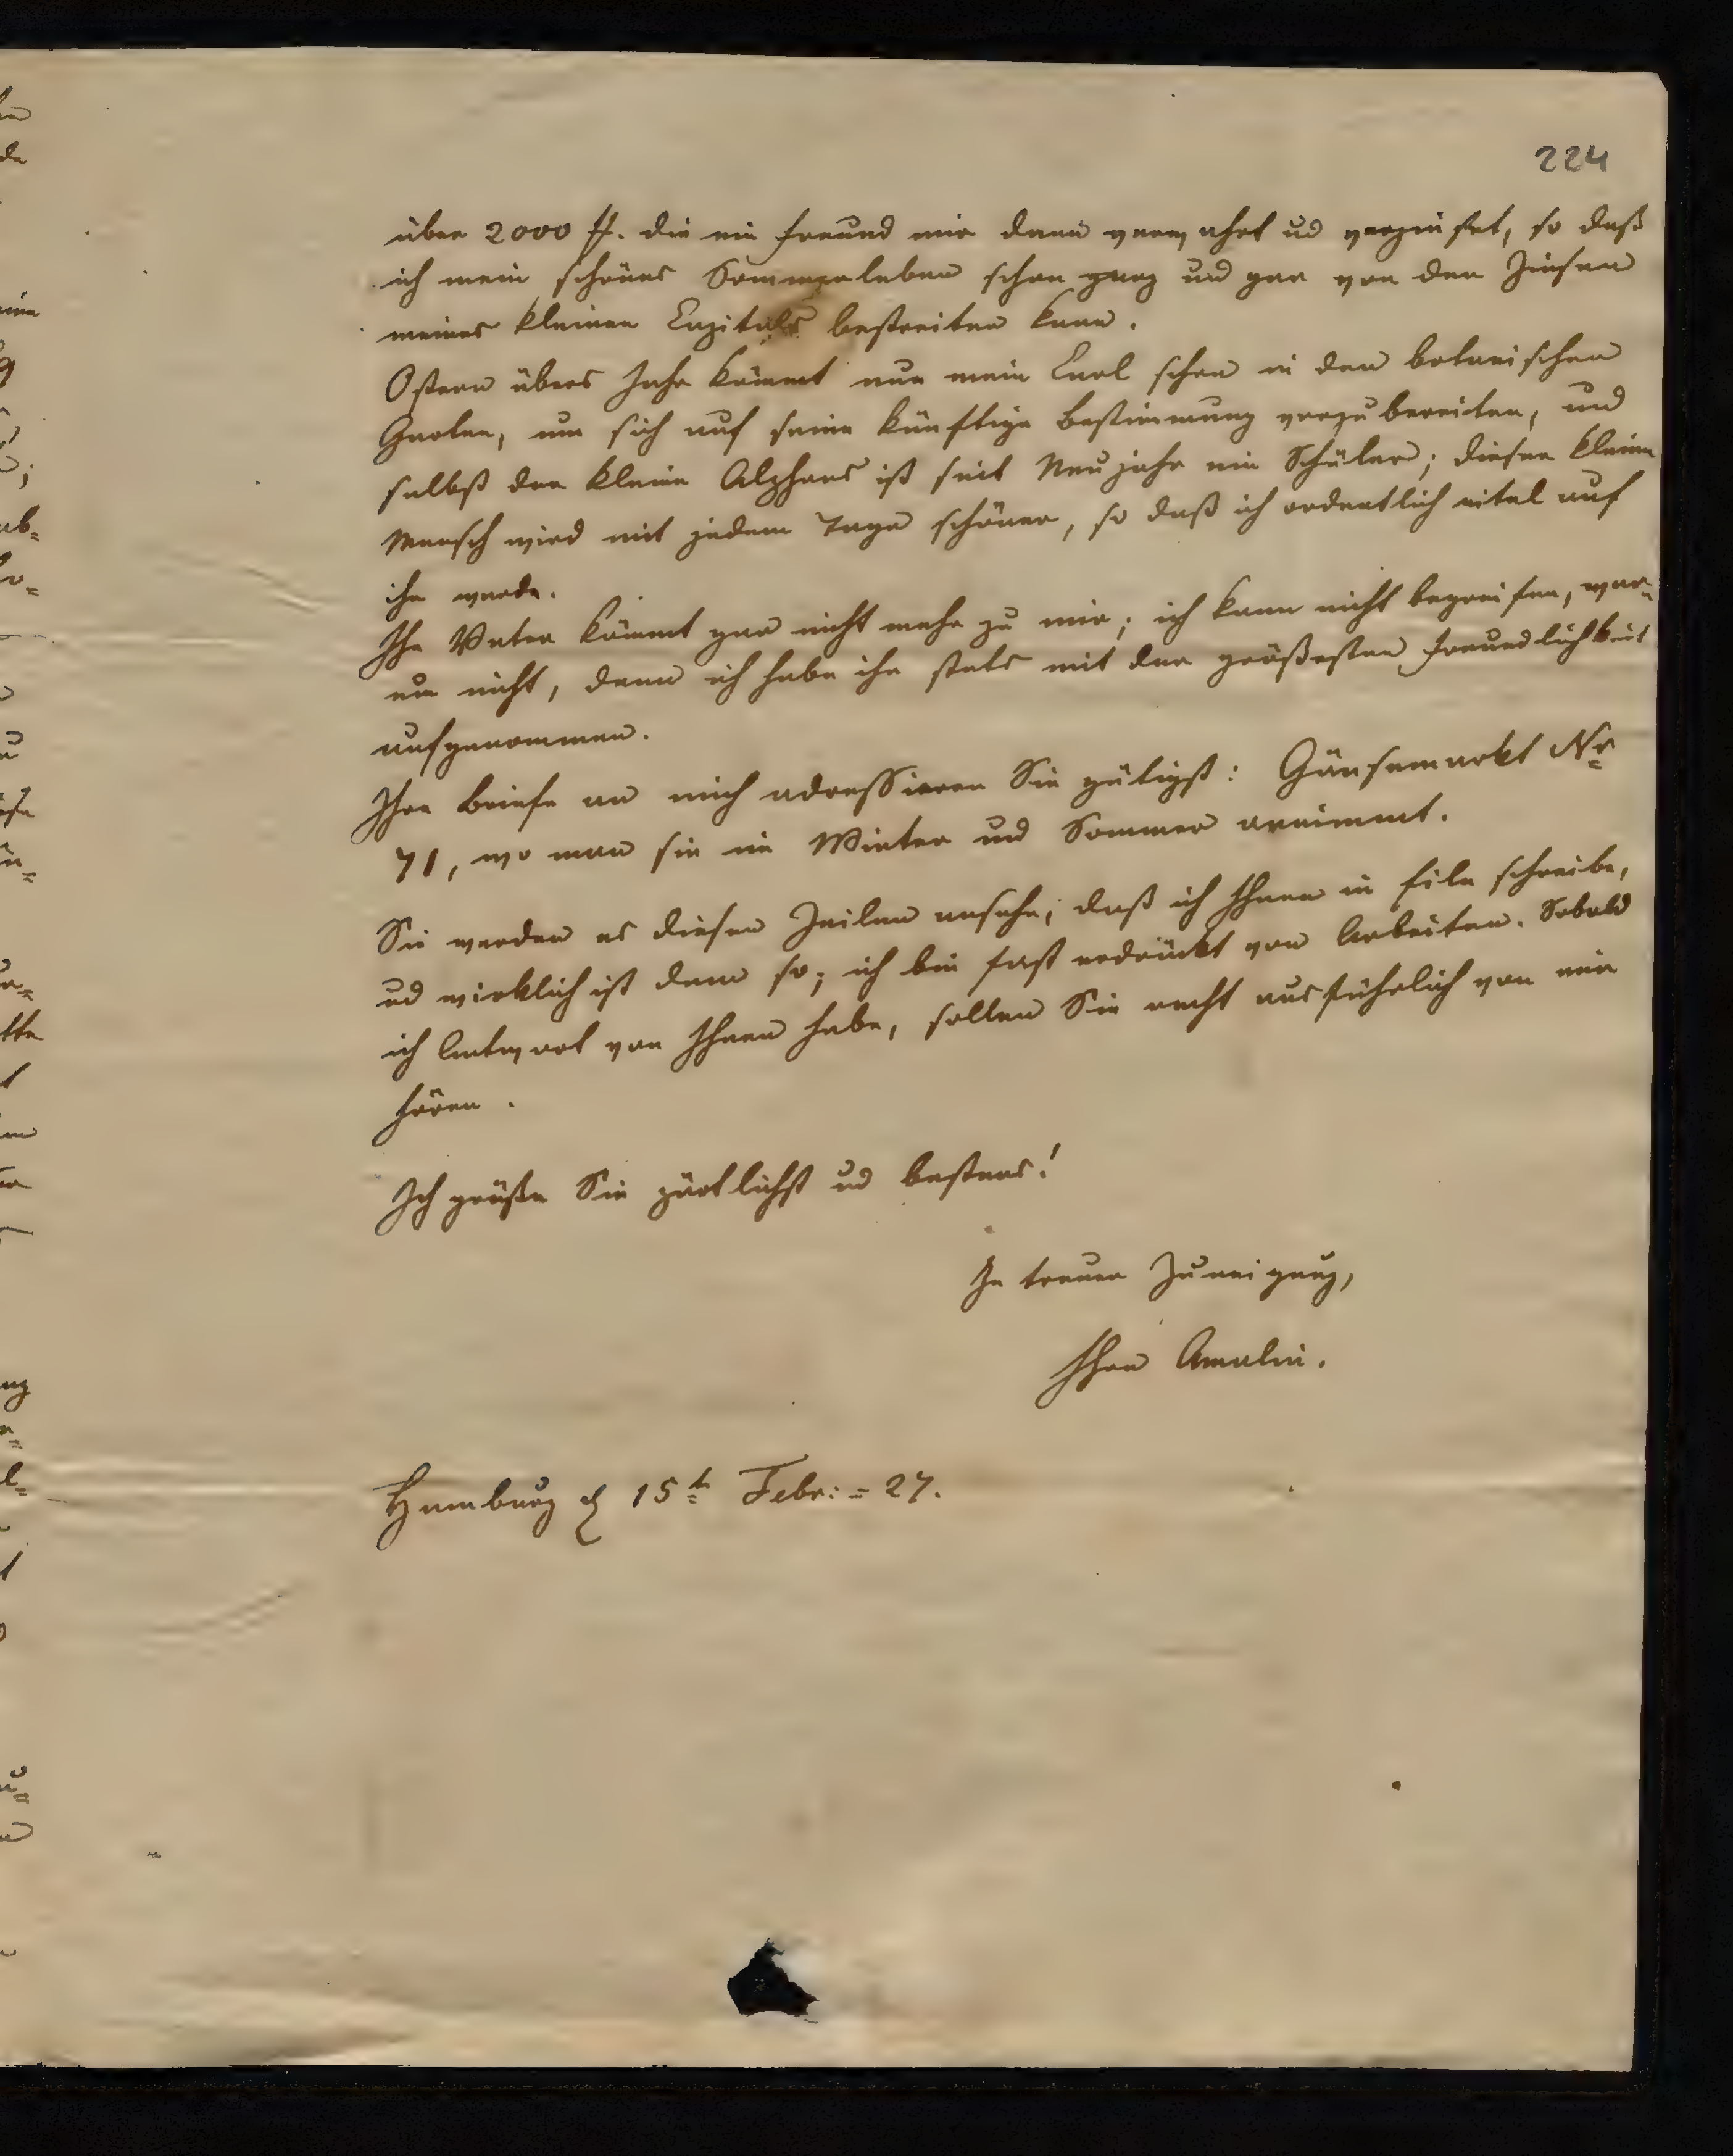 224
über 2000 ff. die ein Freund mir dann verwahrt ud verzinset, so daß
ich mein schönes Sommerleben schon ganz und gar von den Zinsen
meines kleinen Capitals bestreiten kann.
Ostern übers Jahr kömmt nun mein Carl schon in den botanischen
Garten, um sich auf seine künftige Bestimmung vorzubereiten, und
selbst der kleine Alphons ist seit Neujahr ein Schüler; dieser kleine
Mensch wird mit jedem Tage schöner, so daß ich ordentlich eitel auf
ihn werde.
Ihr Vater kömmt gar nicht mehr zu mir; ich kann nicht begreifen, war-
um nicht, denn ich habe ihn stets mit der größesten Freundlichkeit
aufgenommen.
Ihre Briefe an mich adressieren Sie gütigst: Gänsemarkt Nr
71, wo man sie im Winter und Sommer annimmt.
Sie werden es diesen Zeilen ansehn, daß ich Ihnen in Eile schreibe,
ud wirklich ist dem so; ich bin fast erdrückt von Arbeiten. Sobald
ich Antwort von Ihnen habe, sollen Sie recht ausführlich von mir
hören.
Ich grüße Sie zärtlichst ud bestens!
In treuer Zuneigung,
Ihre Amalie.
Hamburg d 15t Febr: = 27.